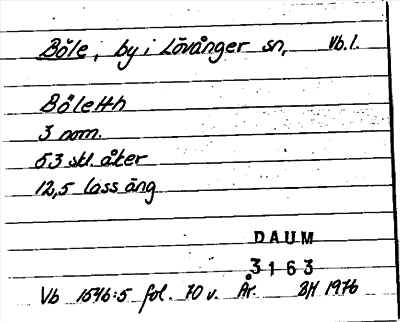 Böle, by i Lövånger sn, Vb.l.
Bölehn
3 nom.
63 skl. åker
12,5 lass äng
DAUM
3163
Vb 1546:5 fol. 70 v. År. BH 1976